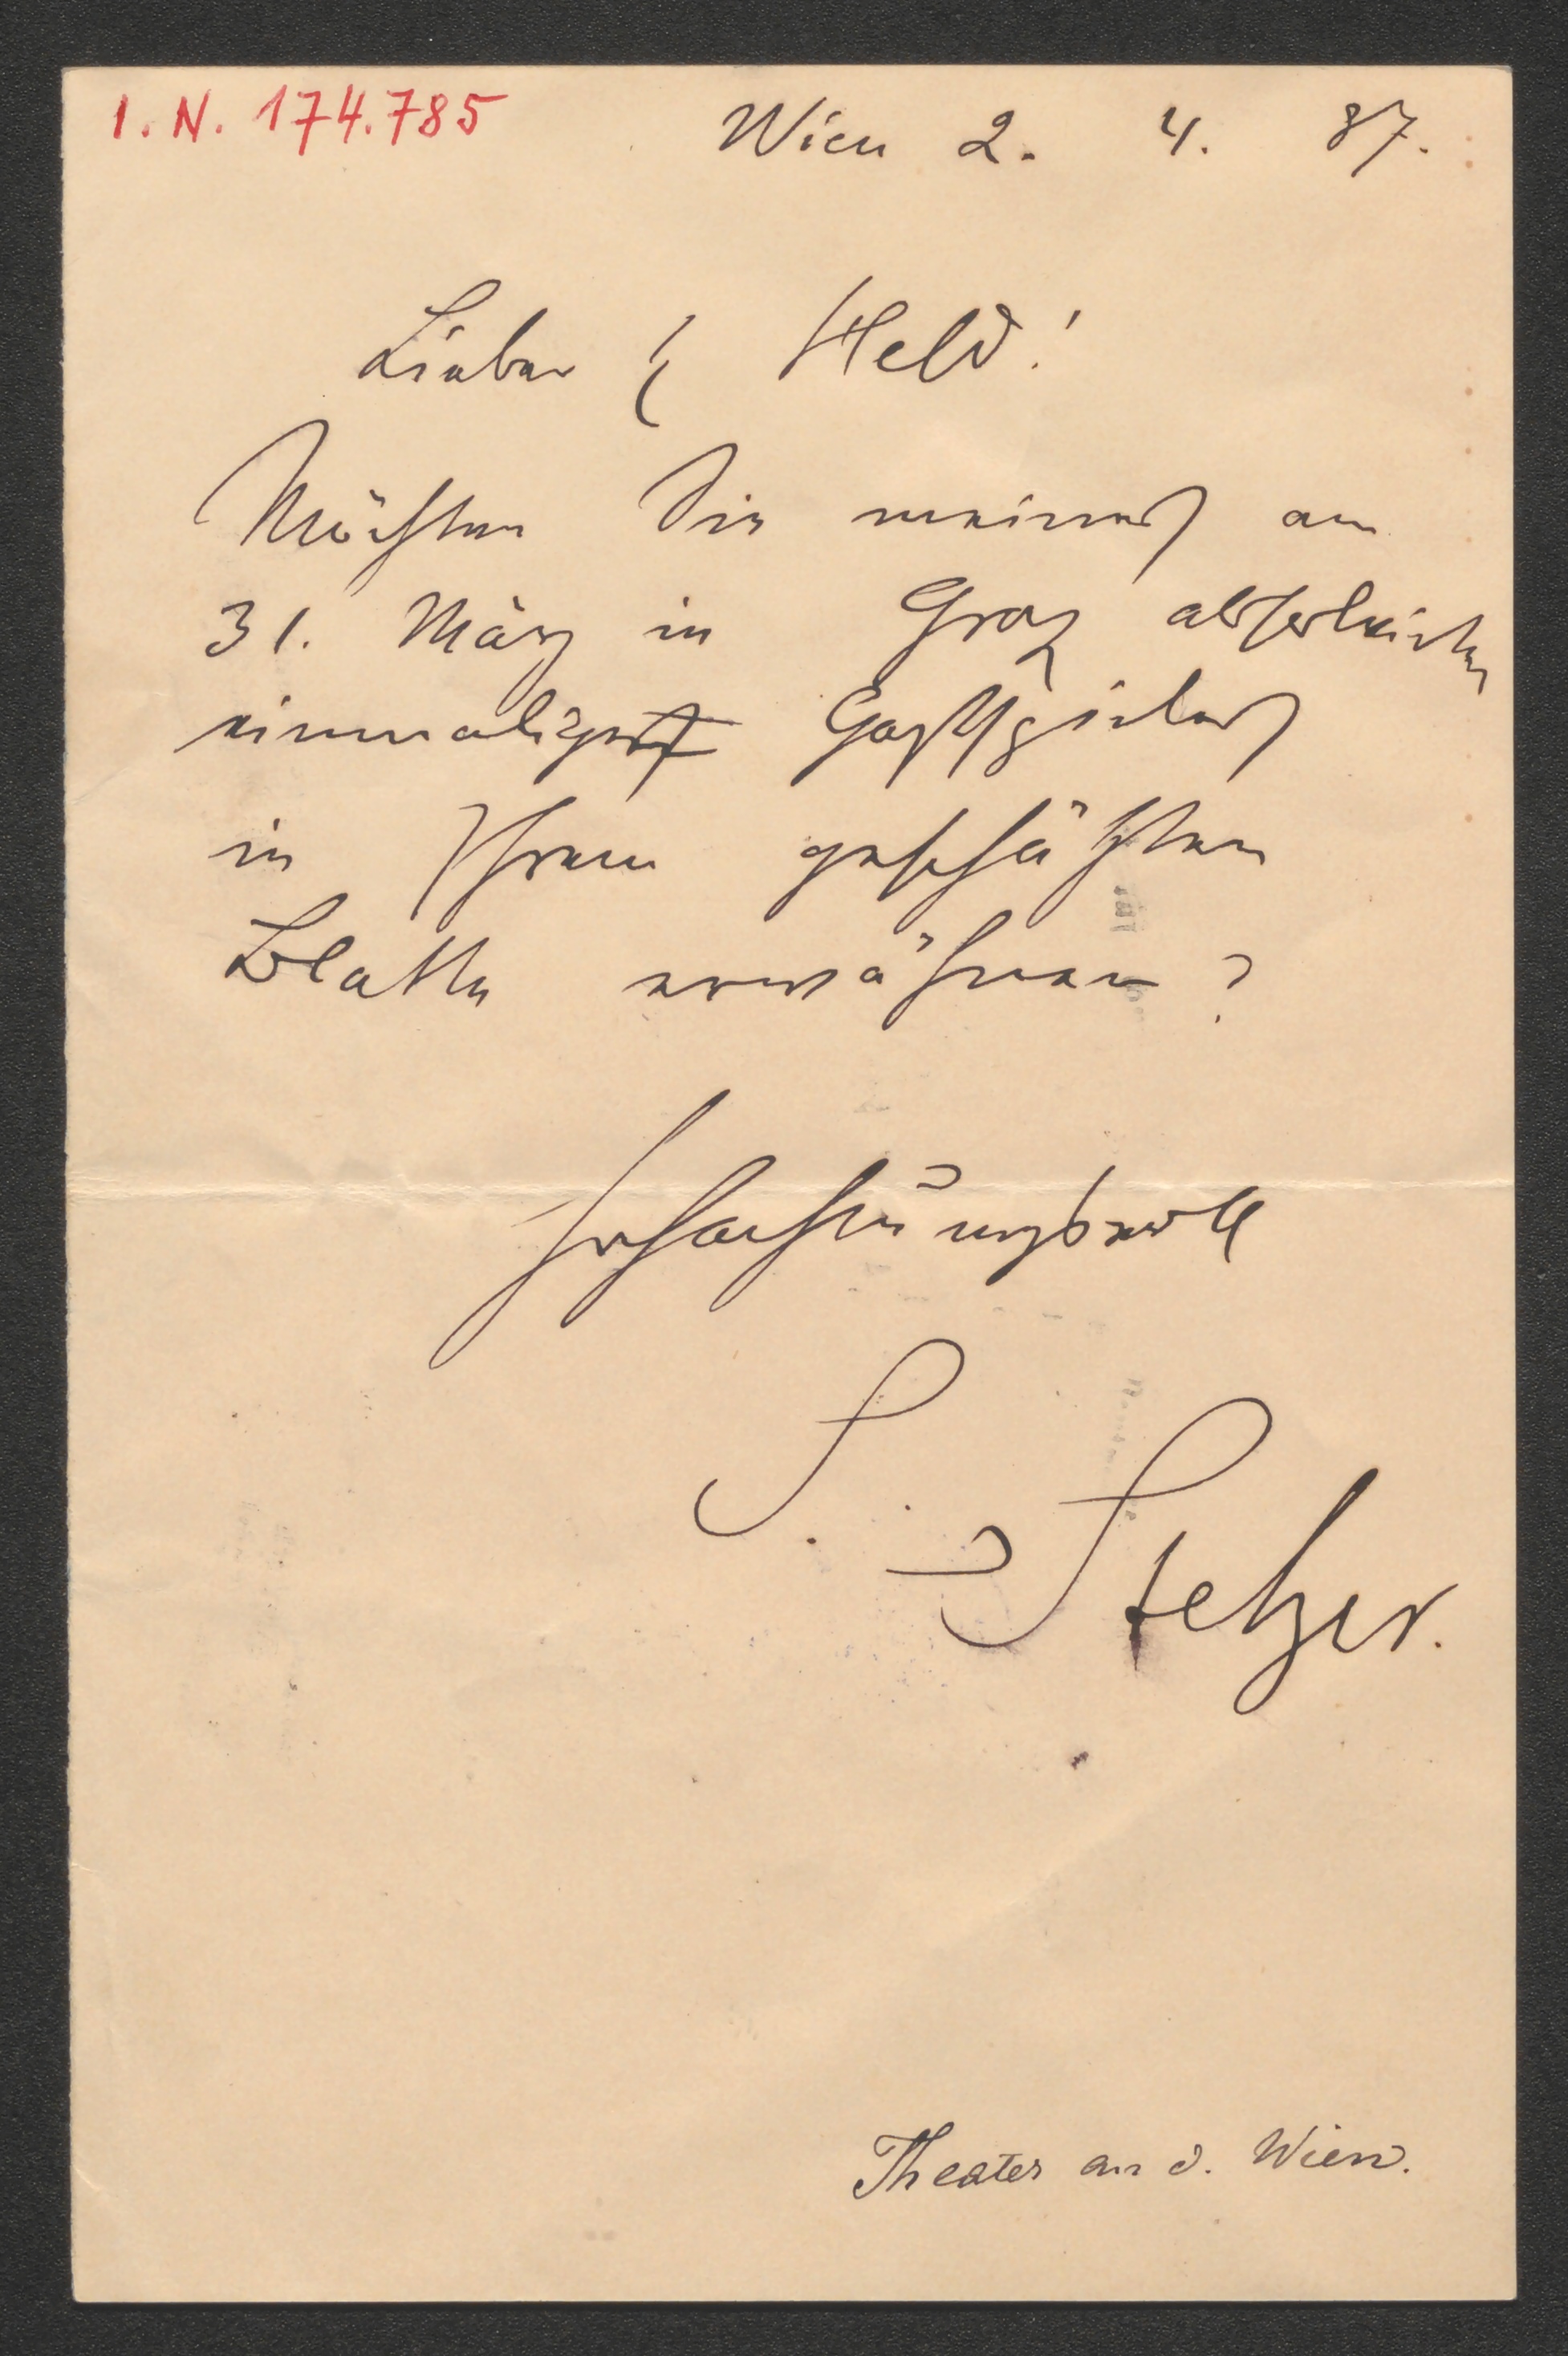 I. N. 174.785
Wien 2. 4. 87.
Lieber H Held!
Möchten Sie meines am
31. März in Graz absolvirten
einmaligen Gastspieles
in Ihrem geschätzten
Blatte erwähnen?
Hochachtungsvoll
S. Stelzer.
Theater an d. Wien.